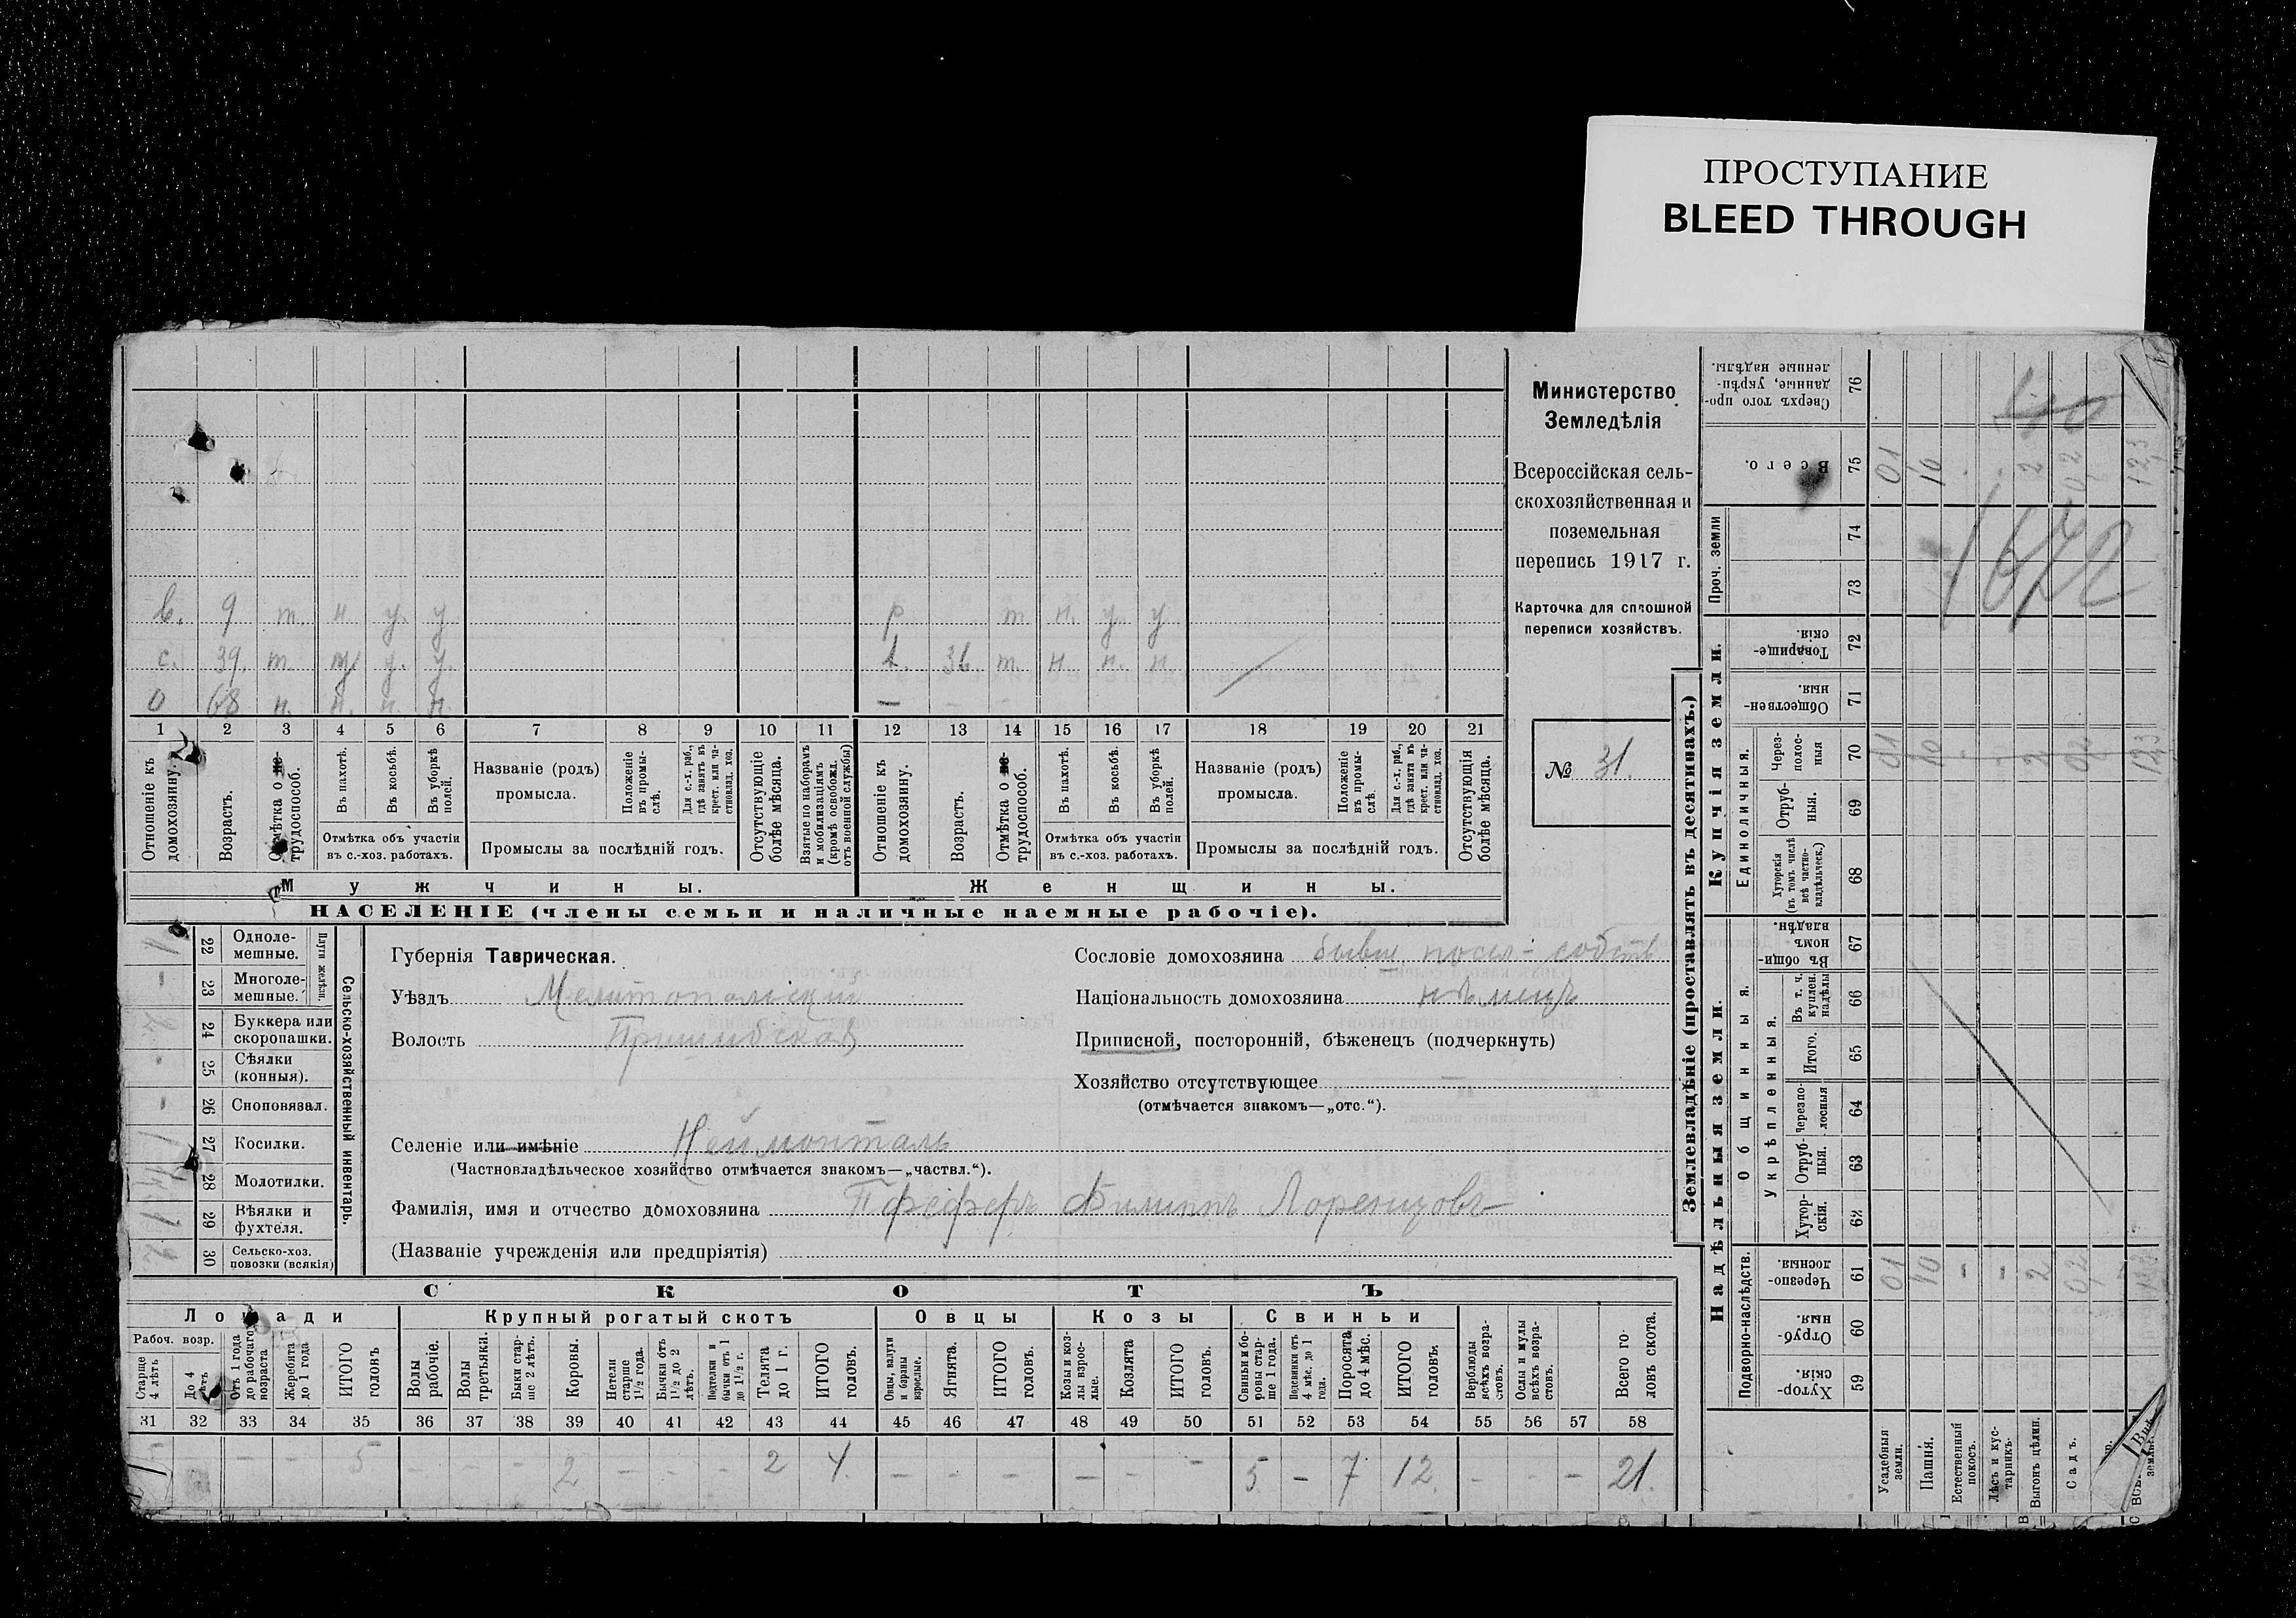 ПРОСТУПАНИЕ
BLEED THROUGH
Министерство
Земледѣлія
Всероссійская сель-
скохозяйственная и
поземельная
перепись 1917 г.
Карточка для сплошной
переписи хозяйствъ.
№ 31.
в. 9 т. н. у. у. р. т. н. у. у.
с. 39. т. у. у. у. 36. т. н. н. н.
о 68 н. н. н. н. —
1 2 3 4 5 6 7 8 9 10 11 12 13 14 15 16 17 18 19 20 21
Отношеніе къ домохозяину.
Возрастъ.
Отмѣтка о не-трудоспособ.
Въ пахотѣ.
Въ косьбѣ.
Въ уборкѣ полей.
Отмѣтка объ участіи въ с.-хоз. работахъ.
Названіе (родъ) промысла.
Положеніе въ промы-слѣ.
Для с.-х. раб., гдѣ занятъ въ крест. или ча-стновлад. хоз.
Промыслы за послѣдній годъ.
Отсутствующіе болѣе мѣсяца.
Взятые по наборамъ и мобилизаціямъ (кромѣ освобожд. отъ военной службы)
Отношеніе къ домохозяину.
Возрастъ.
Отмѣтка о не-трудоспособ.
Въ пахотѣ.
Въ косьбѣ.
Въ уборкѣ полей.
Отмѣтка объ участіи въ с.-хоз. работахъ.
Названіе (родъ) промысла.
Положеніе въ промы-слѣ.
Для с.-х. раб., гдѣ занята въ крест. или ча-стновлад. хоз.
Промыслы за послѣдній годъ.
Отсутствующія болѣе мѣсяца.
Мужчины.
Женщины.
НАСЕЛЕНІЕ (члены семьи и наличные наемные рабочіе).
Сельско-хозяйственный инвентарь.
Плуги желѣзн.
22 Одноле-мешные. 1
23 Многоле-мешные. -
24 Буккера или скоропашки. 2
25 Сѣялки (конныя). -
26 Сноповязал. -
27 Косилки. 1
28 Молотилки.
29 Вѣялки и фухтеля. 1
30 Сельско-хоз. повозки (всякія) 2
Губернія Таврическая.
Уѣздъ Мелитопольскій
Волость Пришибская
Селеніе или имѣніе Неймонталь
(Частновладѣльческое хозяйство отмѣчается знакомъ—„частвл.“).
Фамилія, имя и отчество домохозяина Пфеферъ Филиппъ Лоренцовъ
(Названіе учрежденія или предпріятія)
Сословіе домохозяина бывш. посел-собств
Національность домохозяина нѣмецъ
Приписной, посторонній, бѣженецъ (подчеркнуть)
Хозяйство отсутствующее —
(отмѣчается знакомъ—„отс.“).
СКОТЪ
Лошади
Рабоч. возр.
Старше 4 лѣтъ
До 4 лѣтъ
Отъ 1 года до рабочаго возраста
Жеребята до 1 года
ИТОГО головъ
Крупный рогатый скотъ
Волы рабочіе.
Волы третьяки.
Быки стар-ше 2 лѣтъ.
Коровы.
Нетели старше 1½ года.
Бычки отъ 1½ до 2 лѣтъ.
Нетелки и бычки отъ 1 до 1½ г.
Телята до 1 г.
ИТОГО головъ.
Овцы
Овцы, валухи и бараны взрослые.
Ягнята.
ИТОГО головъ.
Козы
Козы и коз-лы взрос-лые.
Козлята
ИТОГО головъ.
Свиньи
Свиньи и бо-ровы стар-ше 1 года.
Подсвинки отъ 4 мѣс. до 1 года.
Поросята до 4 мѣс.
ИТОГО головъ.
Верблюды всѣхъ возра-стовъ.
Ослы и мулы всѣхъ возра-стовъ.
Всего го-ловъ скота.
31 32 33 34 35 36 37 38 39 40 41 42 43 44 45 46 47 48 49 50 51 52 53 54 55 56 57 58
5 - - - 5 - - - 2 - - - 2 4 - - - - - - 5 - 7 12 - - - 21.
Землевладѣніе (проставлять въ десятинахъ.)
Купчія земли.
Надѣльныя земли.
76 Сверхъ того про-данные, укрѣп-ленные надѣлы.
75 Всего. 01 10 - - 2 02 123
Проч. земли
74
73
1672
72 Товарище-скія.
71 Обществен-ныя.
Единоличныя.
70 Через-полос-ныя 01 10 - - 2 02 123
69 Отруб-ныя.
68 Хуторскія (въ томъ числѣ всѣ частно-владѣльческ.)
Общинныя.
67 Въ общи-номъ владѣн.
Укрѣпленныя.
66 Въ т. ч. куплен. надѣлы
65 Итого.
64 Черезпо-лосныя
63 Отруб-ныя.
62 Хутор-скія.
Подворно-наслѣдств.
61 Черезпо-лосныя. 01 10 - - 2 02
60 Отруб-ныя.
59 Хутор-скія.
Усадебныя земли.
Пашня.
Естественный покосъ.
Лѣсъ и кус-тарникъ.
Выгонъ цѣлин.
Садъ.